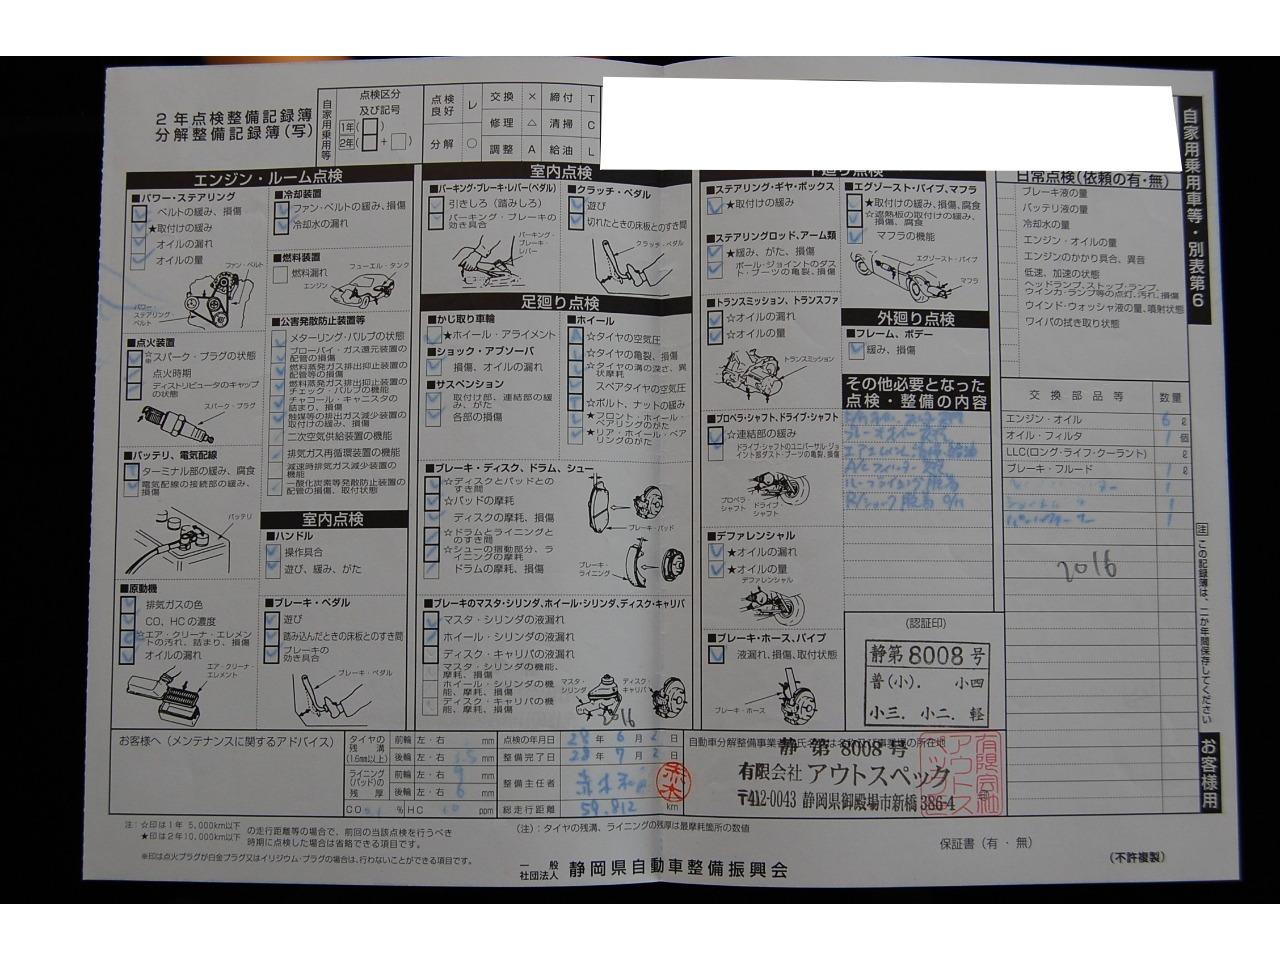 2年点検整備記録簿
分解整備記録簿(写)
自家用乗用等
点検区分
及び記号
1年( )
2年( + )
点検良好 レ 交換 × 締付 T
修理 △ 清掃 C
分解 ○ 調整 A 給油 L
自家用乗用車等・別表第6
エンジン・ルーム点検
■パワー・ステアリング
ベルトの緩み、損傷
★取付けの緩み
オイルの漏れ
オイルの量
ファン・ベルト
パワー・ステアリング・ベルト
■点火装置
☆スパーク・プラグの状態
点火時期
ディストリビュータのキャップの状態
スパーク・プラグ
■バッテリ、電気配線
ターミナル部の緩み、腐食
電気配線の接続部の緩み、損傷
バッテリ
■原動機
排気ガスの色
CO、HCの濃度
☆エア・クリーナ・エレメントの汚れ、詰まり、損傷
オイルの漏れ
エア・クリーナ・エレメント
■冷却装置
ファン・ベルトの緩み、損傷
冷却水の漏れ
■燃料装置
燃料漏れ
フューエル・タンク
エンジン
■公害発散防止装置等
メターリング・バルブの状態
ブローバイ・ガス還元装置の配管の損傷
燃料蒸発ガス排出抑止装置の配管等の損傷
燃料蒸発ガス排出抑止装置のチェック・バルブの機能
チャコール・キャニスタの詰まり、損傷
触媒等の排出ガス減少装置の取付けの緩み、損傷
二次空気供給装置の機能
排気ガス再循環装置の機能
減速時排気ガス減少装置の機能
一酸化炭素等発散防止装置の配管の損傷、取付状態
室内点検
■ハンドル
操作具合
遊び、緩み、がた
■ブレーキ・ペダル
遊び
踏み込んだときの床板とのすき間
ブレーキの効き具合
ブレーキ・ペダル
室内点検
■パーキング・ブレーキ・レバー(ペダル)
引きしろ(踏みしろ)
パーキング・ブレーキの効き具合
パーキング・ブレーキ・レバー
■クラッチ・ペダル
遊び
切れたときの床板とのすき間
クラッチ・ペダル
足廻り点検
■かじ取り車輪
★ホイール・アライメント
■ショック・アブソーバ
損傷、オイルの漏れ
■サスペンション
取付け部、連結部の緩み、がた
各部の損傷
■ホイール
☆タイヤの空気圧
☆タイヤの亀裂、損傷
☆タイヤの溝の深さ、異状摩耗
スペアタイヤの空気圧
☆ボルト、ナットの緩み
★フロント・ホイール・ベアリングのがた
★リア・ホイール・ベアリングのがた
■ブレーキ・ディスク、ドラム、シュー
☆ディスクとパッドとのすき間
☆パッドの摩耗
ディスクの摩耗、損傷
☆ドラムとライニングとのすき間
☆シューの摺動部分、ライニングの摩耗
ドラムの摩耗、損傷
ブレーキ・パッド
ブレーキ・ライニング
■ブレーキのマスタ・シリンダ、ホイール・シリンダ、ディスク・キャリパ
マスタ・シリンダの液漏れ
ホイール・シリンダの液漏れ
ディスク・キャリパの液漏れ
マスタ・シリンダの機能、摩耗、損傷
ホイール・シリンダの機能、摩耗、損傷
ディスク・キャリパの機能、摩耗、損傷
マスタ・シリンダ
ディスク・キャリパ
2016
■ステアリング・ギヤ・ボックス
★取付けの緩み
■ステアリングロッド、アーム類
★緩み、がた、損傷
ボール・ジョイントのダスト・ブーツの亀裂、損傷
■トランスミッション、トランスファ
☆オイルの漏れ
☆オイルの量
トランスミッション
■プロペラ・シャフト、ドライブ・シャフト
☆連結部の緩み
ドライブ・シャフトのユニバーサル・ジョイント部ダスト・ブーツの亀裂、損傷
プロペラ・シャフト
ドライブ・シャフト
■デファレンシャル
★オイルの漏れ
★オイルの量
デファレンシャル
■ブレーキ・ホース、パイプ
液漏れ、損傷、取付状態
ブレーキ・ホース
■エグゾースト・パイプ、マフラ
★取付けの緩み、損傷、腐食
☆遮熱板の取付けの緩み、損傷、腐食
マフラの機能
エグゾースト・パイプ
マフラ
外廻り点検
■フレーム、ボデー
緩み、損傷
その他必要となった点検・整備の内容
日常点検(依頼の有・無)
ブレーキ液の量
バッテリ液の量
冷却水の量
エンジン・オイルの量
エンジンのかかり具合、異音
低速、加速の状態
ヘッドランプ、ストップ・ランプ、ウインカ・ランプ等の点灯、汚れ、損傷
ウインド・ウォッシャ液の量、噴射状態
ワイパの拭き取り状態
交換部品等 数量
エンジン・オイル 6 ℓ
オイル・フィルタ 1 個
LLC(ロング・ライフ・クーラント) ℓ
ブレーキ・フルード 1 ℓ
1
1
1
2016
(認証印)
静第8008号
普(小). 小四
小三. 小二. 軽
注 この記録簿は、二か年間保存してください
お客様用
お客様へ(メンテナンスに関するアドバイス)
タイヤの残溝(1.6mm以上) 前輪 左・右 mm
後輪 左・右 mm
ライニング(パッド)の残厚 前輪 左・右 9 mm
後輪 左・右 6 mm
CO % HC ppm
点検の年月日 28年6月2日
整備完了日 28年7月2日
整備主任者
総走行距離 59,812 km
静第8008号
有限会社アウトスペック
〒412-0043 静岡県御殿場市新橋386-4
注:☆印は1年 5,000km以下
★印は2年10,000km以下 の走行距離等の場合で、前回の当該点検を行うべき時期に点検した場合は省略できる項目です。
※印は点火プラグが白金プラグ又はイリジウム・プラグの場合は、行わないことができる項目です。
(注):タイヤの残溝、ライニングの残厚は最摩耗箇所の数値
保証書(有・無)
一般社団法人 静岡県自動車整備振興会
(不許複製)